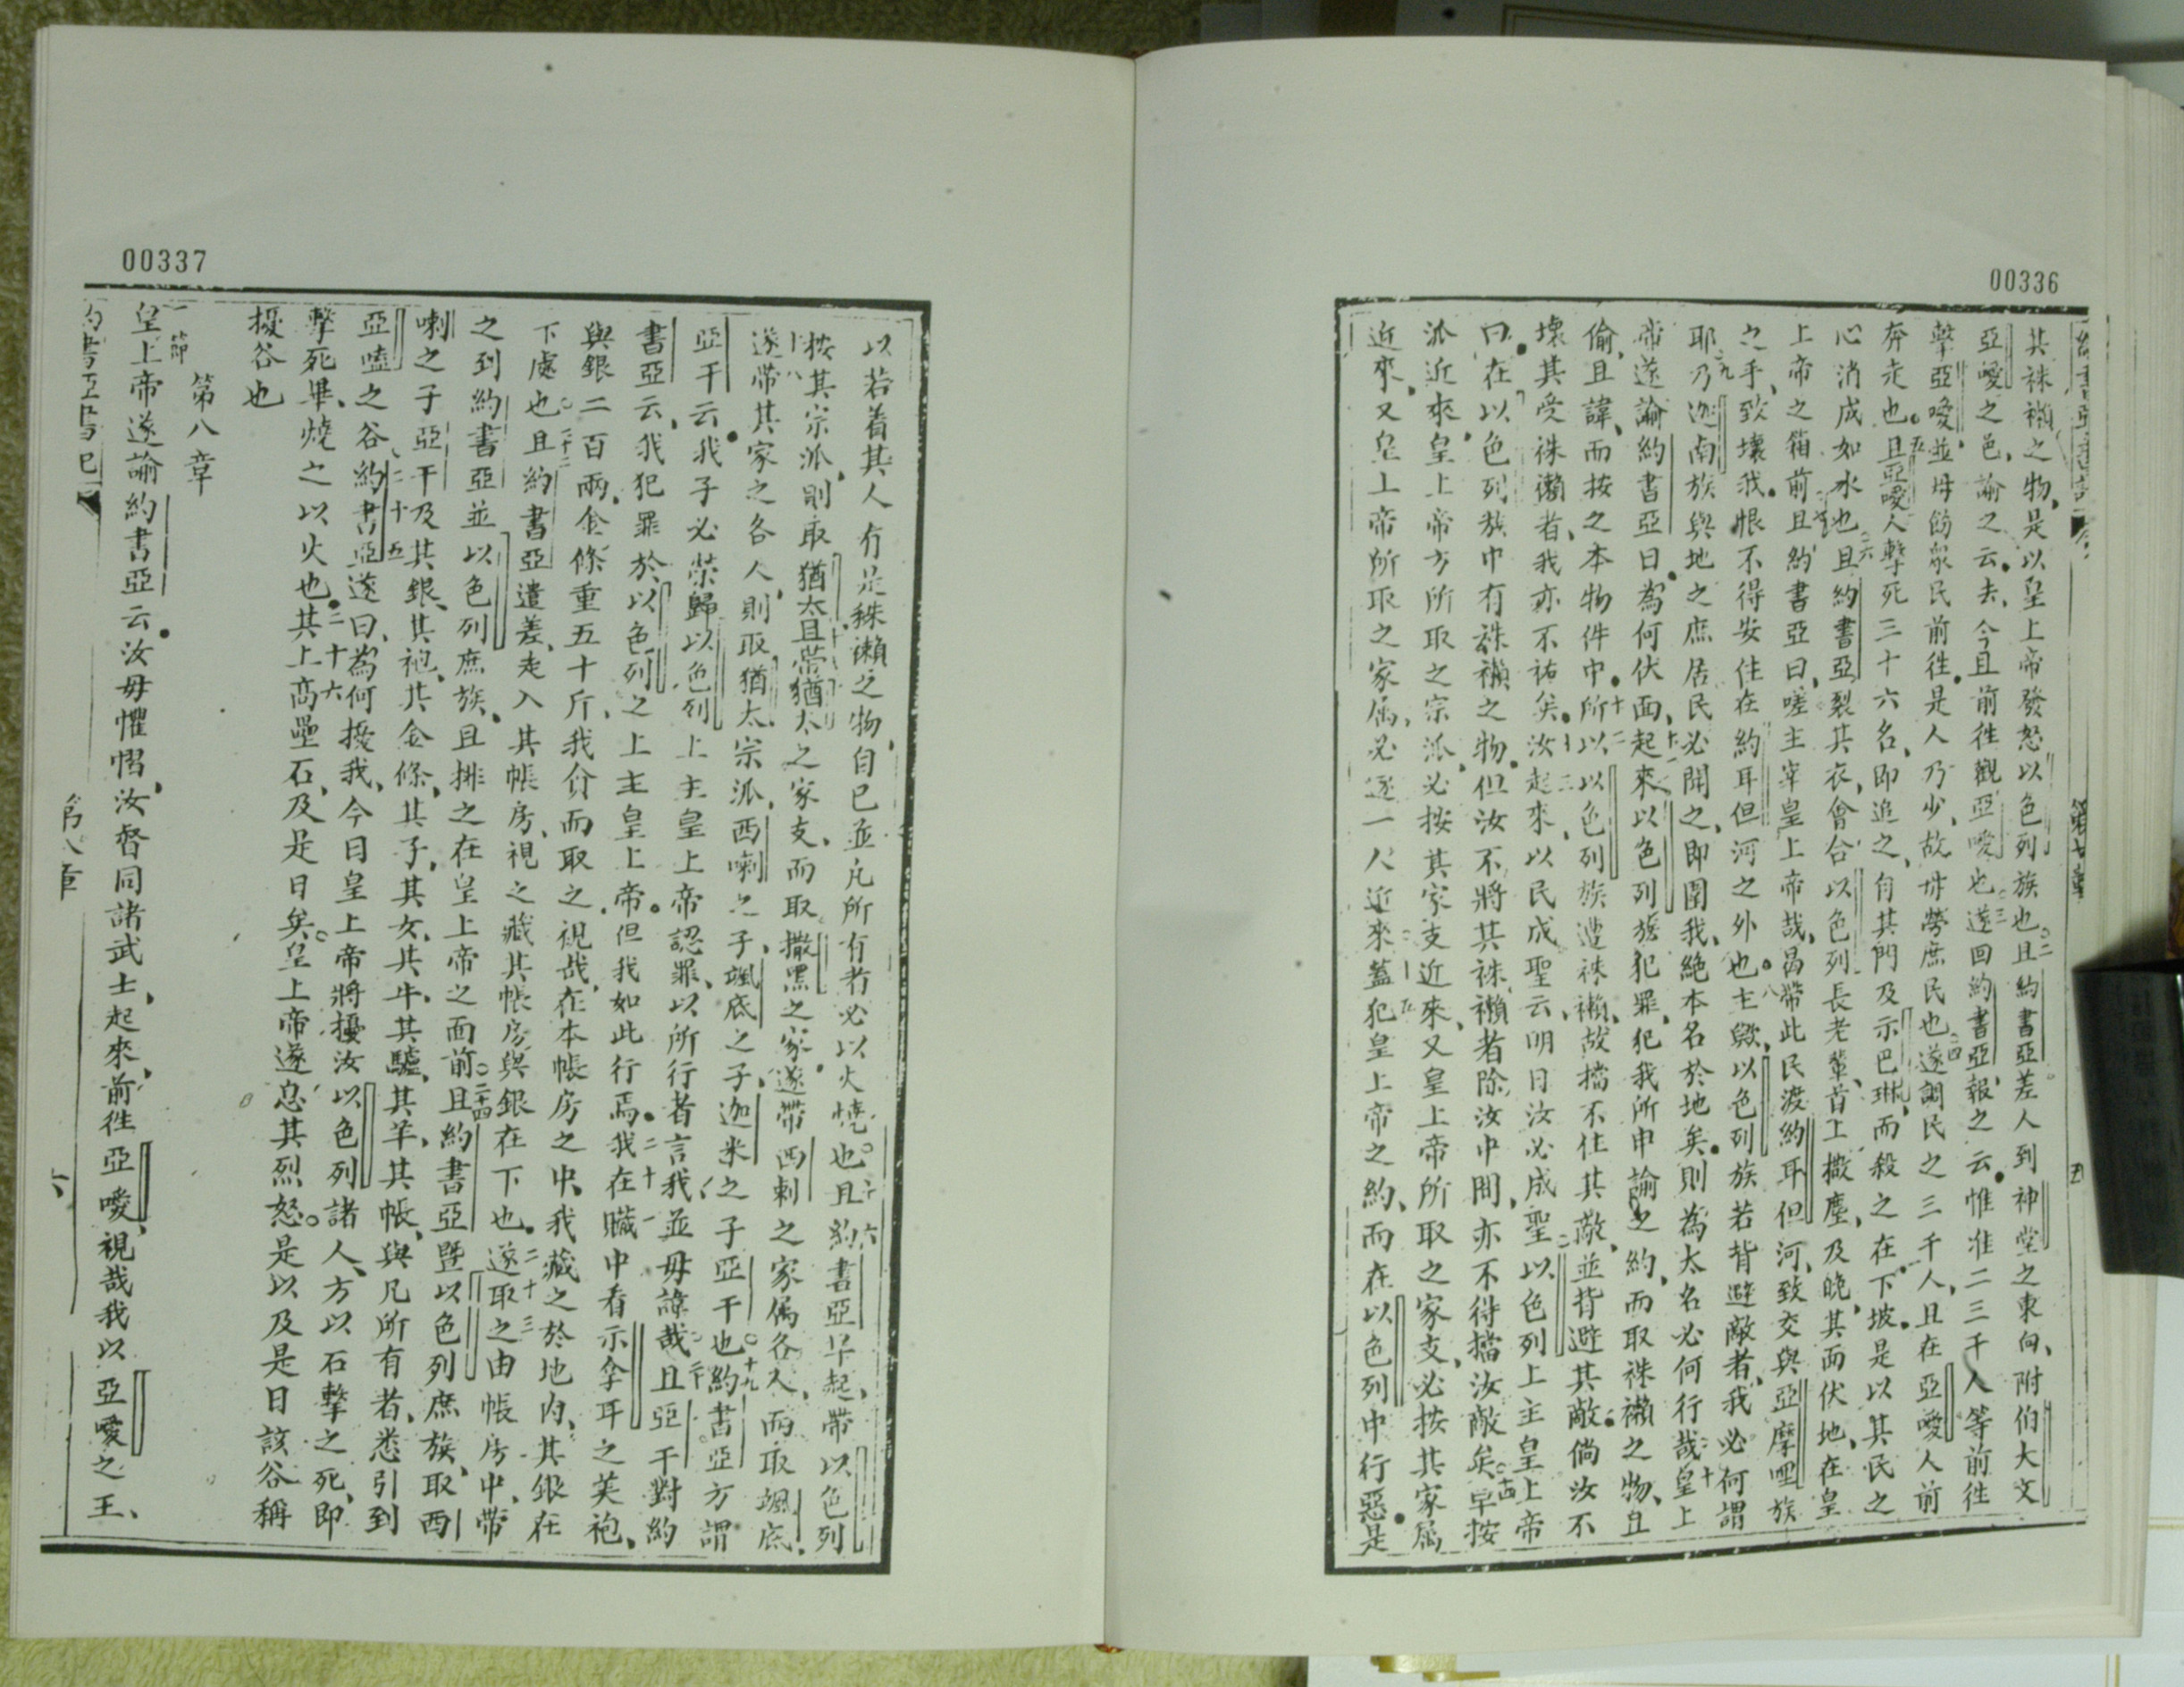 00336
約書亞書記
第七章
五
其祩襰之物、是以皇上帝發怒以色列族也○二且約書亞差人到神堂之東向、附伯大文
亞噯之邑、諭之云、去、今且前徃觀亞噯也○三遂回約書亞報之云、惟准二三千人等前徃
擊亞噯、並毋飭眾民前徃、是人乃少、故毋勞庶民也○四遂調民之三千人、且在亞噯人前
奔走也○五且亞噯人擊死三十六名、即追之、自其門及示巴琳、而殺之在下坡、是以其民之
心消成如水也○六且約書亞裂其衣、會合以色列長老輩、首上撒塵、及晚、其面伏地、在皇
上帝之箱前○七且約書亞曰、嗟主宰皇上帝哉、曷帶此民渡約耳但河、致交與亞摩哩族
之手、致壞我、恨不得安住在約耳但河之外也○八主歟、以色列族若背避敵者、我必何謂
耶○九乃迦南族與地之庶居民必聞之、即圍我、絕本名於地矣、則為大名必何行哉○十皇上
帝遂諭約書亞曰、為何伏面、起來○十一以色列族犯罪、犯我所申諭之約、而取祩襰之物、且
偷、且諱、而按之本物件中○十二所以以色列族遭祩襰、故擋不住其敵、並背避其敵、倘汝不
壞其受祩襰者、我亦不祐矣○十三汝起來、以民成聖云、明日汝必成聖、以色列上主皇上帝
曰、在以色列族中有祩襰之物、但汝不將其祩襰者除汝中間、亦不得擋汝敵矣○十四早按
派近來、皇上帝方所取之宗派、必按其家支近來、又皇上帝所取之家支、必按其家属
近來、又皇上帝所取之家属、必逐一人近來○十五蓋犯皇上帝之約、而在以色列中行惡、是
00337
以若着其人有是祩襰之物、自己並凡所有者必以火燒也○十六且約書亞早起、帶以色列
按其宗派、則取猶太○十七且帶猶太之家支、而取撒黑之家、遂帶西剌之家属各人、而取颯底、
十八遂帶其家之各人、則取猶太宗派、西喇之子、颯底之子、迦米之子亞干也○十九約書亞方謂
亞干云、我子必榮歸以色列上主皇上帝、認罪、以所行者言我、並毋諱哉○二十且亞干對約
書亞云、我犯罪於以色列之上主皇上帝、但我如此行焉○二十一我在贓中看示拿耳之美袍、
與銀二百兩、金條重五十斤、我貪而取之、視哉、在本帳房之中、我藏之於地內、其銀在
下處也○二十二且約書亞遣差、走入其帳房、視之藏其帳房、與銀在下也○二十三遂取之由帳房中、帶
之到約書亞並以色列庶族、且排之在皇上帝之面前○二十四且約書亞暨以色列庶族、取西
喇之子亞干及其銀、其袍、其金條、其子、其女、其牛、其驢、其羊、其帳、與凡所有者、悉引到
亞嗑之谷○二十五約書亞遂曰、為何擾我、今日皇上帝將擾汝、以色列諸人、方以石擊之死、即
擊死畢、燒之以火也○二十六其上高壘石、及是日矣、皇上帝遂息其烈怒○是以及是日該谷稱
擾谷也
第八章
一節
皇上帝遂諭約書亞云、汝毋懼慴、汝督同諸武士、起來、前徃亞噯、視哉我以亞噯之王、
約書亞書記
第八章
六